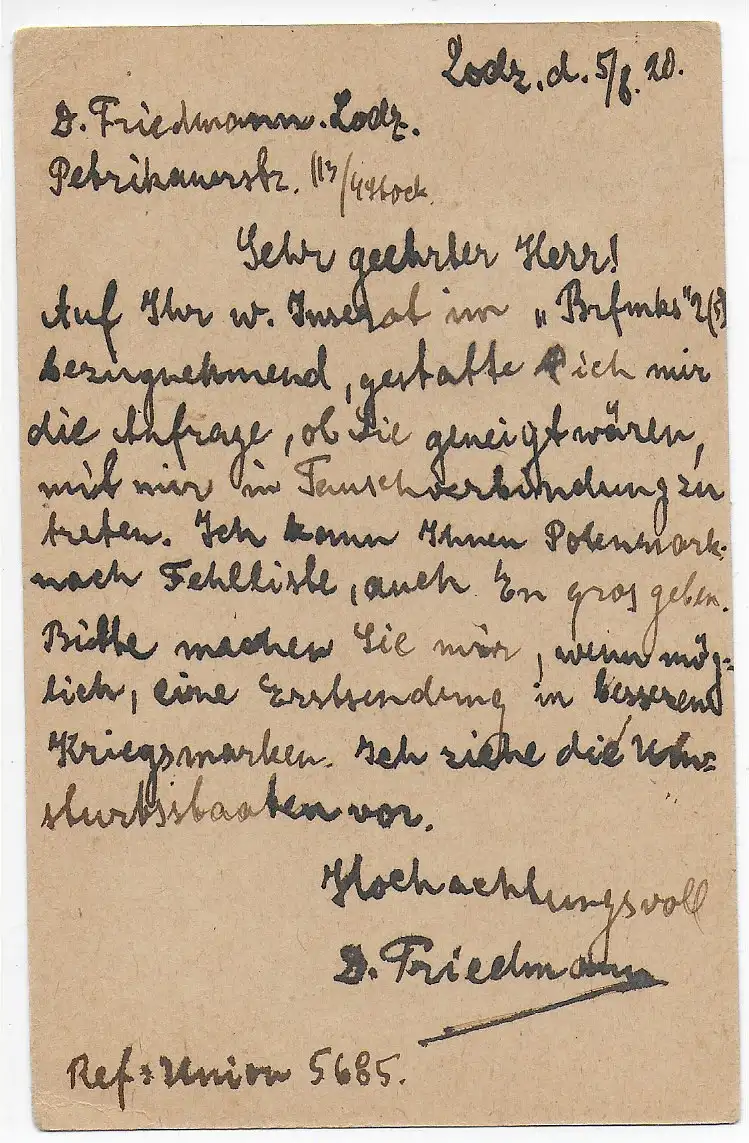 Lodz. d. 5/8. 20.
D. Friedmann. Lodz.
Petrikauerstr. 113/4 Stock.
Sehr geehrter Herr!
Auf Ihr w. Inserat im „Brfmks"
bezugnehmend, gestatte ich mir
die Anfrage, ob Sie geneigt wären,
mit mir in Tauschverbindung zu
treten. Ich kann Ihnen Polenmark.
nach Fehlliste, auch En gros geben.
Bitte machen Sie mir, wenn mög=
lich, eine Erstsendung in besseren
Kriegsmarken. Ich ziehe die Um=
sturtsstaaten vor.
Hochachtungsvoll
D. Friedmann
Ref: Union 5685.